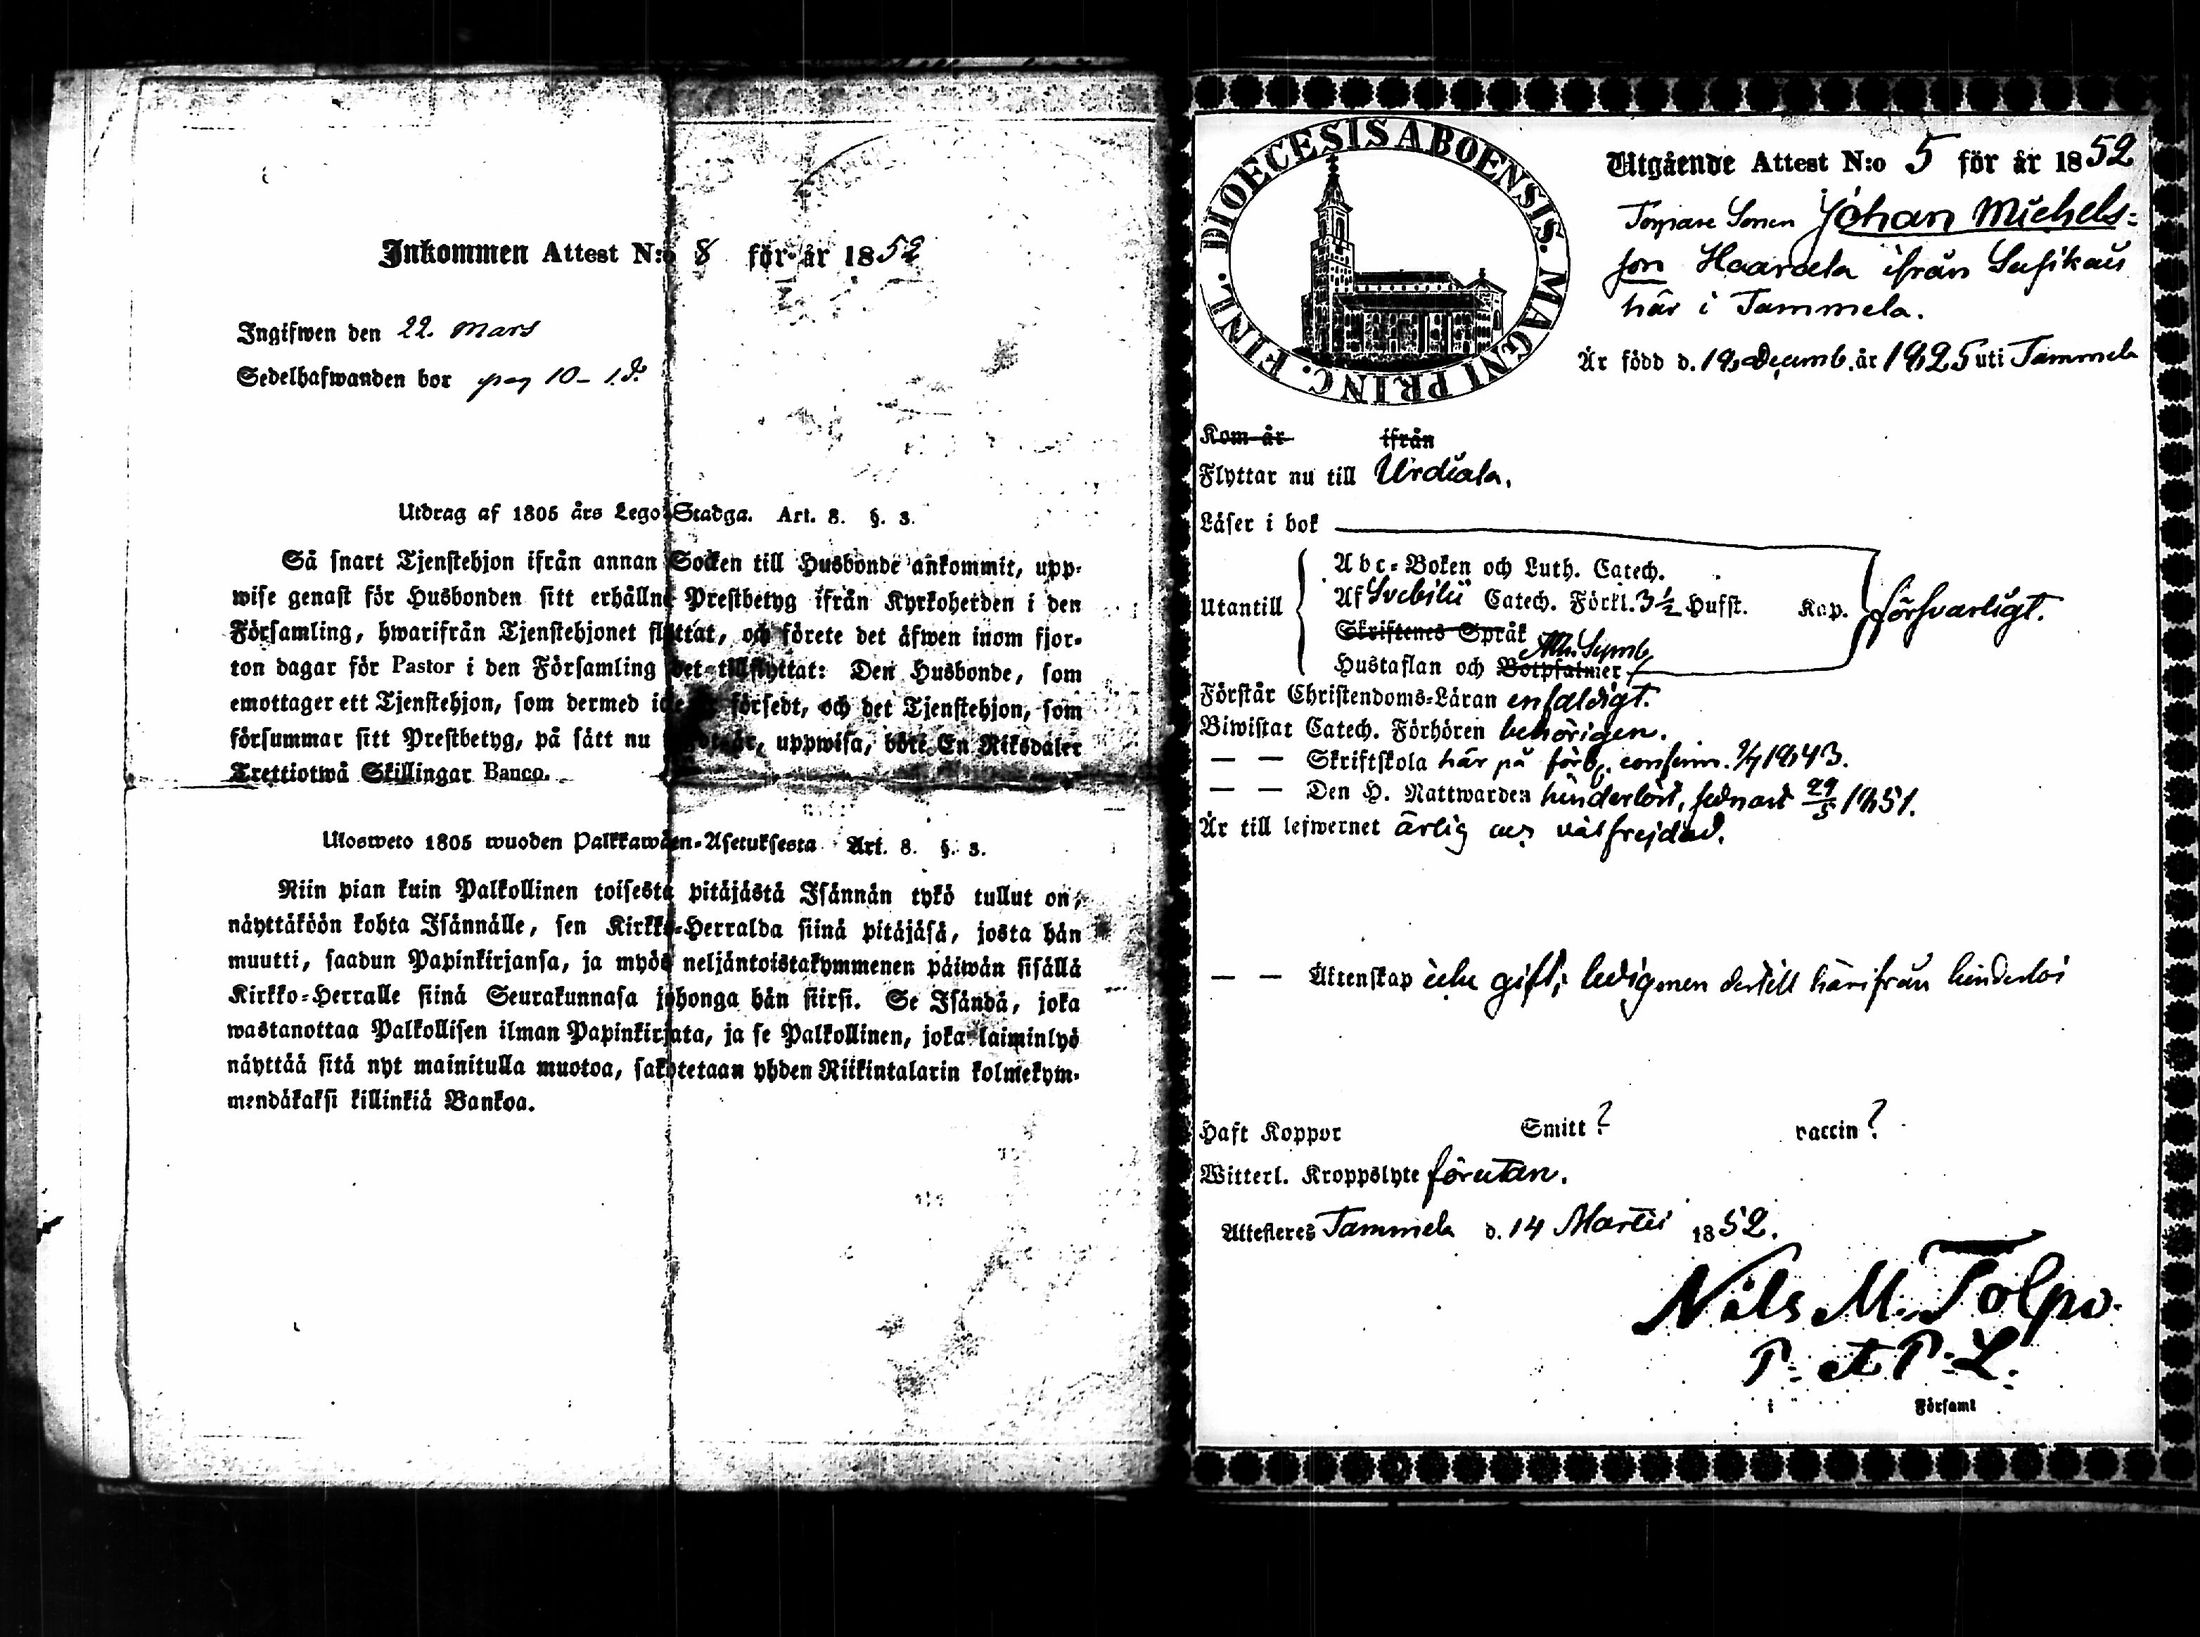 Inkommen Attest N:o 8 för år 1852
Ingifwen den 22. Mars
Sedelhafwanden bor pag 10 -
Utdrag af 1805 års Lego-Stadga. Art. 8. §. 3.
Så snart Tjenstehjon ifrån annan Socken till Husbonde ankommit, upp-
wise genast för Husbonden sitt erhållne Prestbetyg ifrån Kyrkoherden i den
Församling, hwarifrån Tjenstehjonet flyttat, och förete det äfwen inom fjor-
ton dagar för Pastor i den Församling det tillflyttat: Den Husbonde, som
emottager ett Tjenstehjon, som dermed icke är försedt, och det Tjenstehjon, som
försummar sitt Prestbetyg, på sätt nu uppwisa, böte En Riksdaler
Trettiotwå Skillingar Banco.
Ulosweto 1805 wuoden Palkkawäen-Asetuksesta Art. 8. §. 3.
Niin pian kuin Palkollinen toisesta pitäjästä Isännän tykö tullut on,
näyttäköön kohta Isännälle, sen Kirkko-Herralda siinä pitäjäsä, josta hän
muutti, saadun Papinkirjansa, ja myös neljäntoistakymmenen päiwän sisällä
Kirkko-Herralle siinä Seurakunnasa johonga hän siirsi. Se Isändä, joka
wastanottaa Palkollisen ilman Papinkirjata, ja se Palkollinen, joka laiminlyö
näyttää sitä nyt mainitulla muotoa, sakotetaan yhden Riikintalarin kolmekym-
mendäkaksi killinkiä Bankoa.
DIOECESIS ABOENSIS. MAGNI PRINC. FINL.
Utgående Attest N:o 5 för år 1852
Torpare Sonen Johan Michels-
son Haarala ifrån
här i Tammela.
Är född d. 18 Decemb. år 1825 uti Tammela
Kom år ifrån
Flyttar nu till Urdiala.
Läser i bok
Utantill
Abc-Boken och Luth. Catech.
Af Svebilii Catech. Förkl. 3½ Hufst. Kap. försvarligt.
Skriftenes Språk
Ath. Symb.
Hustaflan och Botpsalmer
Förstår Christendoms-Läran enfaldigt.
Biwistat Catech. Förhören behörigen.
— — Skriftskola här på förb. confirm. 1843.
— — Den H. Nattwarden hinderlöst, sednast 29/5 1851.
Är till lefwernet ärlig och välfrejdad.
— — Äktenskap icke gift; ledig men dertill härifrån hinderlös
Haft Koppor Smitt? vaccin?
Witterl. Kroppslyte förutan.
Attesteres Tammela d. 14 Martii 1852.
Nils M. Tolpo.
P. et P. L.
i Församl